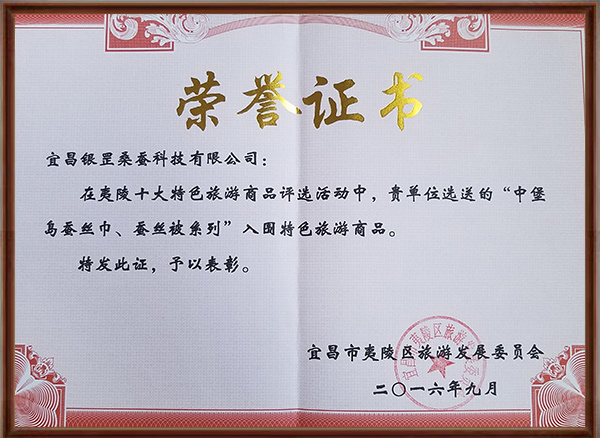 荣誉证书
宜昌银罡桑蚕科技有限公司：
在夷陵十大特色旅游商品评选活动中，贵单位选送的“中堡
岛蚕丝巾、蚕丝被系列”入围特色旅游商品。
特发此证，予以表彰。
宜昌市夷陵区旅游发展委员会
二〇一六年九月